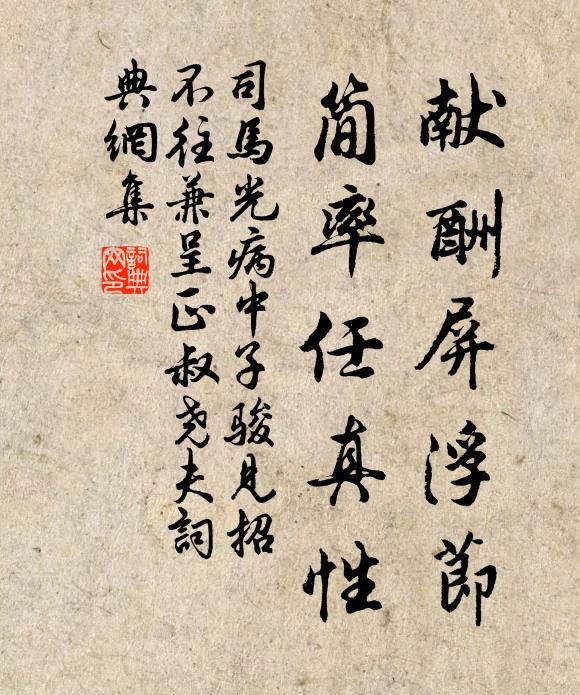 献酬屏浮節
简率任真性
司馬光病中子骏見招
不往兼呈正叔尧夫詞
典網集
詞典网印